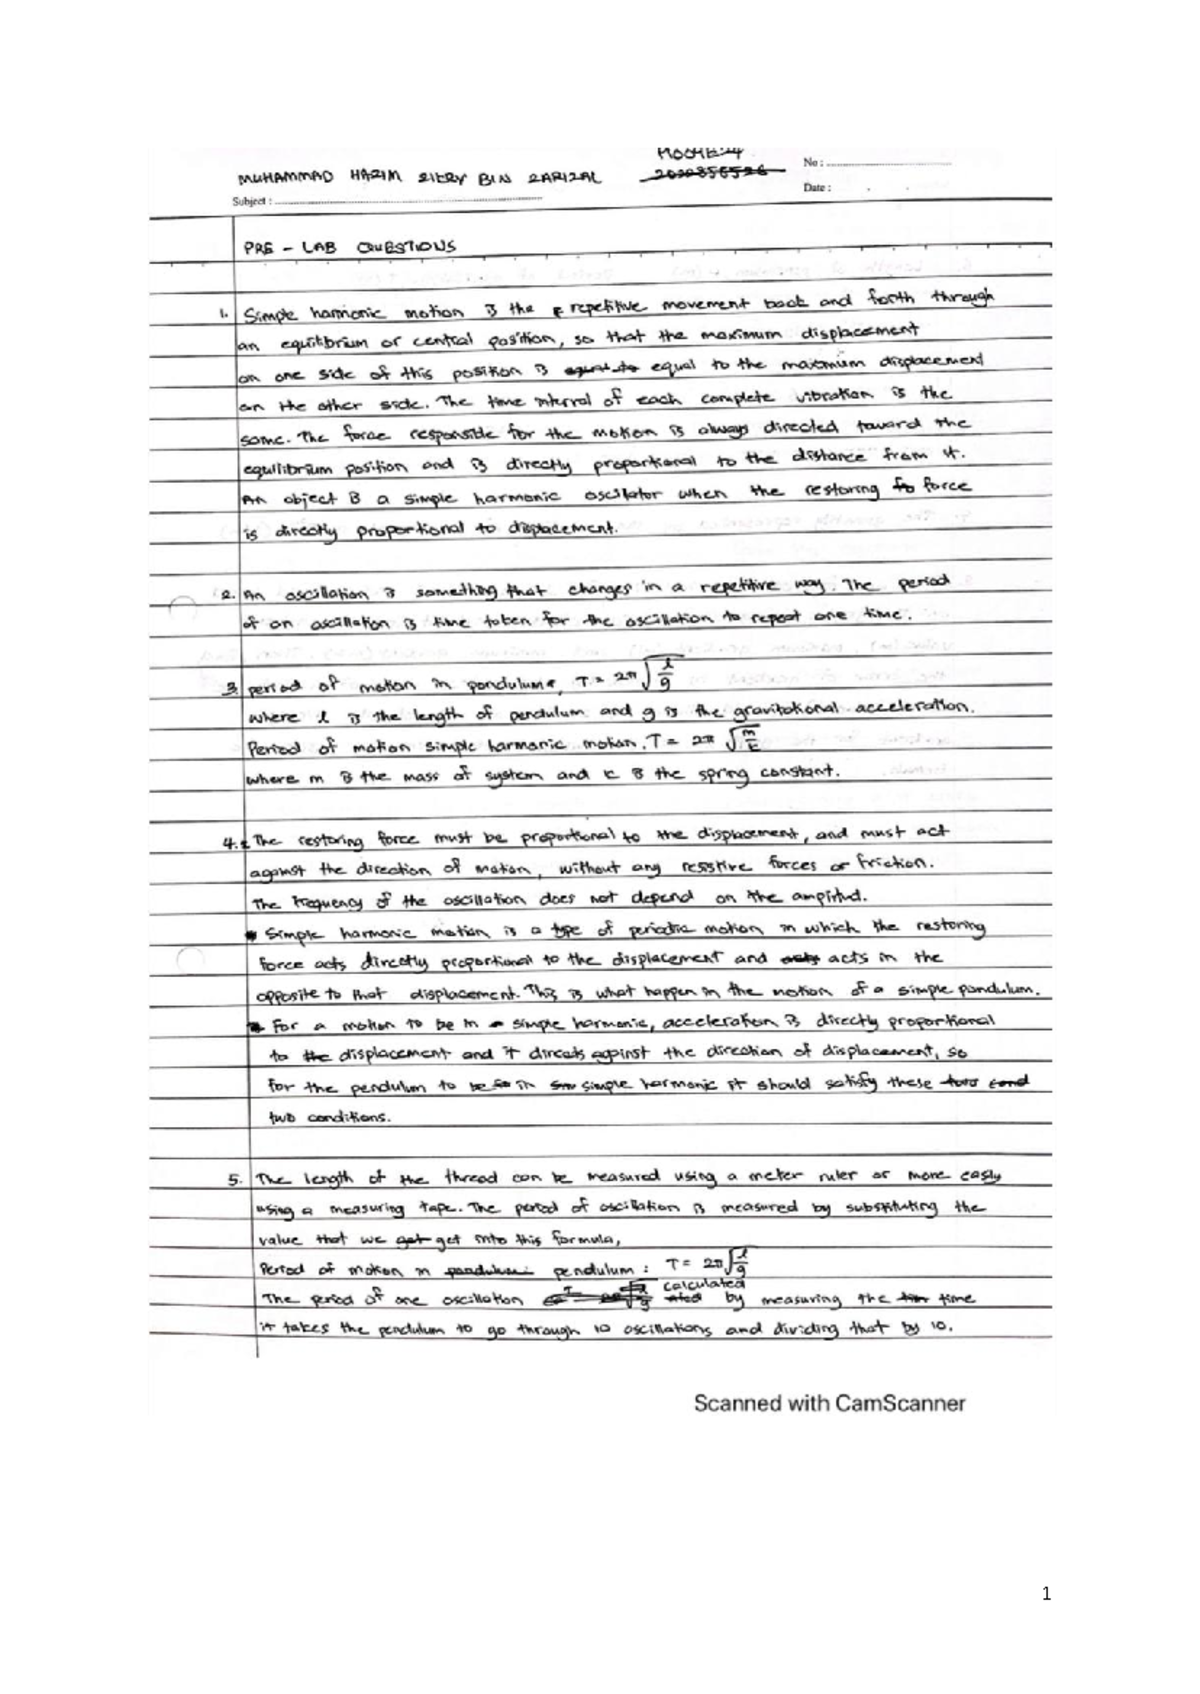 MUHAMMAD HAZIM BIN ZARIZAL
No :
Subject :
Date :
PRE - LAB QUESTIONS
1. Simple harmonic motion is the repetitive movement back and forth through
an equilibrium or central position, so that the maximum displacement
on one side of this position is equal to the maximum displacement
on the other side. The time interval of each complete vibration is the
same. The force responsible for the motion is always directed toward the
equilibrium position and is directly proportional to the distance from it.
An object is a simple harmonic oscillator when the restoring force
is directly proportional to displacement.
2. An oscillation is something that changes in a repetitive way. The period
of an oscillation is time taken for the oscillation to repeat one time.
3. period of motion in pendulum, T = 2π√(l/g)
where l is the length of pendulum and g is the gravitational acceleration.
Period of motion simple harmonic motion, T = 2π√(m/k)
where m is the mass of system and k is the spring constant.
4. The restoring force must be proportional to the displacement, and must act
against the direction of motion, without any resistive forces or friction.
The frequency of the oscillation does not depend on the
Simple harmonic motion is a type of periodic motion in which the restoring
force acts directly proportional to the displacement and acts in the
opposite to that displacement. This is what happen in the motion of a simple pendulum.
For a motion to be in simple harmonic, acceleration is directly proportional
to displacement and it directs against the direction of displacement, so
for the pendulum to in simple harmonic it should satisfy these
two conditions.
5. The length of the thread can be measured using a meter ruler or more easly
using a measuring tape. The period of oscillation is measured by substituting the
value that we get into this formula,
Period of motion in pendulum : T = 2π√(l/g)
The period of one oscillation calculated by measuring the time
it takes the pendulum to go through 10 oscillations and dividing that by 10.
Scanned with CamScanner
1